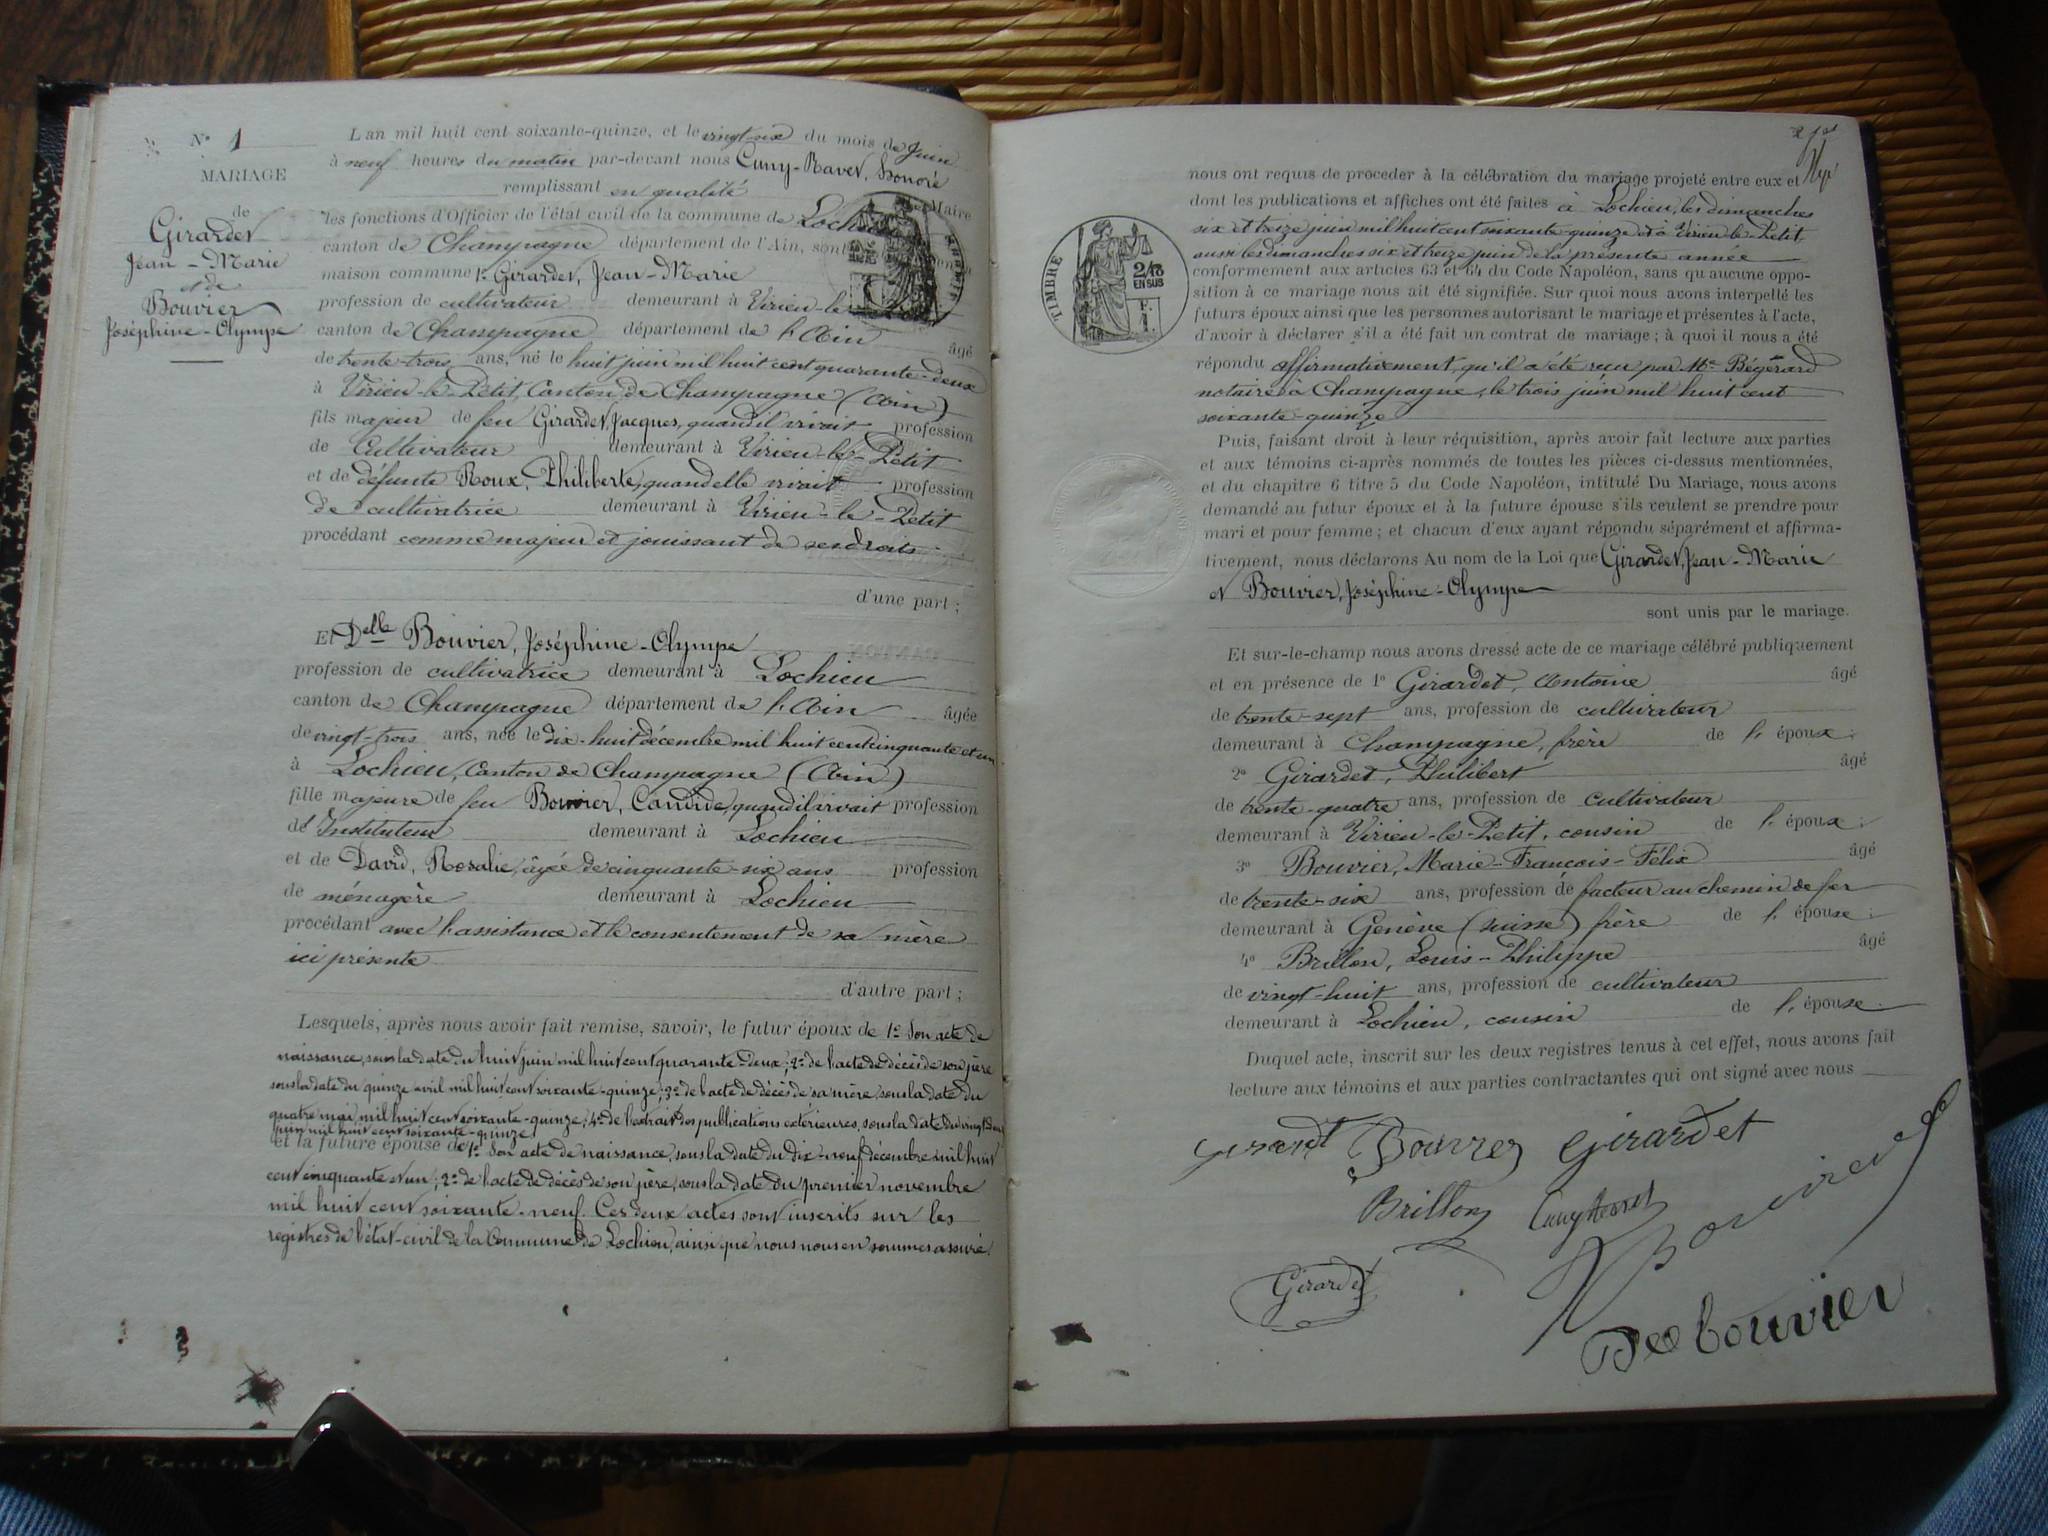 N° 1
MARIAGE
de
Girardet
Jean-Marie
et de
Bouvier
Joséphine-Olympe
L'an mil huit cent soixante-quinze, et le vingt-six du mois de Juin
à neuf heures du matin par-devant nous Cuny-Ravet, Honoré
remplissant en qualité de Maire
les fonctions d'Officier de l'état civil de la commune de Lochieu
canton de Champagne département de l'Ain, sont
maison commune 1° Girardet, Jean-Marie
profession de cultivateur demeurant à Virieu-le-
canton de Champagne département de l'Ain âgé
de trente-trois ans, né le huit juin mil huit cent quarante-deux
à Virieu-le-Petit, Canton de Champagne (Ain)
fils majeur de feu Girardet, Jacques, quand il vivait profession
de Cultivateur demeurant à Virieu-le-Petit
et de défunte Roux, Philiberte, quand elle vivait profession
de cultivatrice demeurant à Virieu-le-Petit
procédant comme majeur et jouissant de ses droits
d'une part ;
Et Delle Bouvier, Joséphine-Olympe
profession de cultivatrice demeurant à Lochieu
canton de Champagne département de l'Ain âgée
de vingt-trois ans, née le dix-huit décembre mil huit cent cinquante et un
à Lochieu, Canton de Champagne (Ain)
fille majeure de feu Bouvier, Candide, quand il vivait profession
d'Instituteur demeurant à Lochieu
et de David, Rosalie, âgée de cinquante-six ans profession
de ménagère demeurant à Lochieu
procédant avec l'assistance et le consentement de sa mère
ici présente
d'autre part ;
Lesquels, après nous avoir fait remise, savoir, le futur époux de 1° Son acte de
naissance, sous la date du huit juin mil huit cent quarante-deux ; 2° de l'acte de décès de son père
sous la date du quinze avril mil huit cent soixante-quinze ; 3° de l'acte de décès de sa mère, sous la date du
quatre mai mil huit cent soixante-quinze ; 4° de l'extrait des publications extérieures, sous la date du vingt
juin mil huit cent soixante-quinze
et la future épouse de 1° Son acte de naissance, sous la date du dix-neuf décembre mil huit
cent cinquante et un ; 2° de l'acte de décès de son père, sous la date du premier novembre
mil huit cent soixante-neuf. Ces deux actes sont inscrits sur les
registres de l'état-civil de la Commune de Lochieu, ainsi que nous nous en sommes assuré.
nous ont requis de procéder à la célébration du mariage projeté entre eux et
dont les publications et affiches ont été faites à Lochieu, les dimanches
six et treize juin mil huit cent soixante-quinze et à Virieu-le-Petit
aussi les dimanches six et treize juin de la présente année
conformement aux articles 63 et 64 du Code Napoléon, sans qu'aucune oppo-
sition à ce mariage nous ait été signifiée. Sur quoi nous avons interpellé les
futurs époux ainsi que les personnes autorisant le mariage et présentes à l'acte,
d'avoir à déclarer s'il a été fait un contrat de mariage ; à quoi il nous a été
répondu affirmativement, qu'il a été reçu par Me Bégérard
notaire à Champagne, le trois juin mil huit cent
soixante-quinze
TIMBRE
2/10
EN SUS
F.
1.
Puis, faisant droit à leur réquisition, après avoir fait lecture aux parties
et aux témoins ci-après nommés de toutes les pièces ci-dessus mentionnées,
et du chapitre 6 titre 5 du Code Napoléon, intitulé Du Mariage, nous avons
demandé au futur époux et à la future épouse s'ils veulent se prendre pour
mari et pour femme ; et chacun d'eux ayant répondu séparément et affirma-
tivement, nous déclarons Au nom de la Loi que Girardet, Jean-Marie
et Bouvier, Joséphine-Olympe
sont unis par le mariage.
Et sur-le-champ nous avons dressé acte de ce mariage célébré publiquement
et en présence de 1° Girardet, Antoine âgé
de trente-sept ans, profession de cultivateur
demeurant à Champagne, frère de l'époux ;
2° Girardet, Philibert âgé
de trente-quatre ans, profession de cultivateur
demeurant à Virieu-le-Petit, cousin de l'époux ;
3° Bouvier, Marie-François-Félix âgé
de trente-six ans, profession de facteur au chemin de fer
demeurant à Genève (Suisse) frère de l'épouse ;
4° Brillon, Louis-Philippe âgé
de vingt-huit ans, profession de cultivateur
demeurant à Lochieu, cousin de l'épouse
Duquel acte, inscrit sur les deux registres tenus à cet effet, nous avons fait
lecture aux témoins et aux parties contractantes qui ont signé avec nous
Girardet
Brillon
Girardet